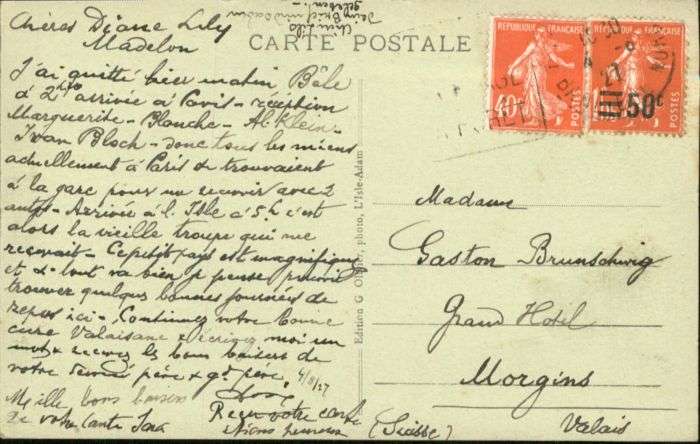 Chères Diane Lily
Madelon
CARTE POSTALE
J'ai quitté hier matin Bâle
à 2h arrivée à Paris - réception
Marguerite - Blanche - Al. Klein -
Ivan Bloch - donc tous les miens
actuellement à Paris se trouvaient
à la gare pour me recevoir avec 2
autos - Arrivée à l'Isle à 5h c'est
alors la vieille troupe qui me
recevait - Ce petit pays est magnifique
et si tout va bien je pense pouvoir
trouver quelques bonnes journées de
repos ici - Continuez votre bonne
cure Valaisane & écrivez moi un
mot & recevez les bons baisers de
votre père & gd père
4/8/27
Mille bons baisers
de votre tante Sara
Reçu votre carte
Edition G. photo, L'Isle-Adam
REPUBLIQUE FRANÇAISE
40c
POSTES
REPUBLIQUE FRANÇAISE
50c
POSTES
27
Madame
Gaston Brunschwig
Grand Hotel
Morgins
(Suisse) Valais